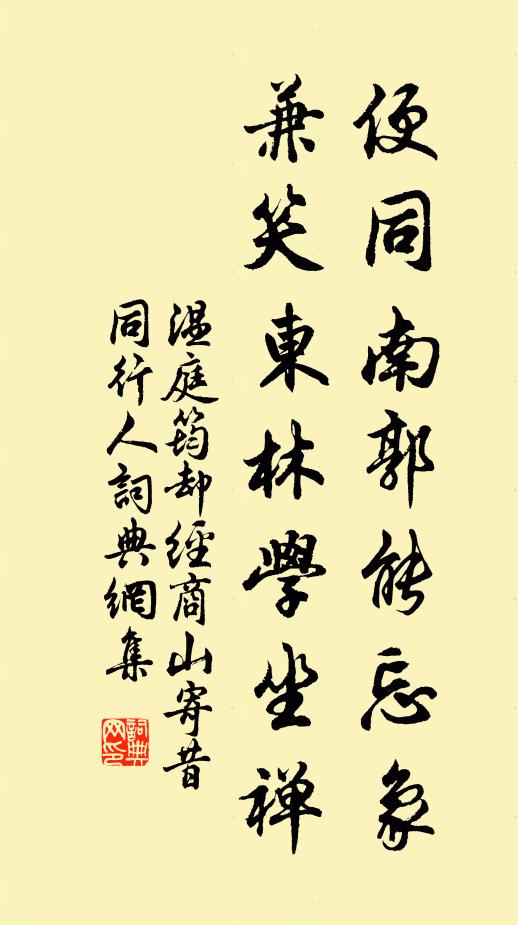 便同南郭能忘象
兼笑東林學坐禅
温庭筠却經商山寄昔
同行人詞典網集
詞典网印